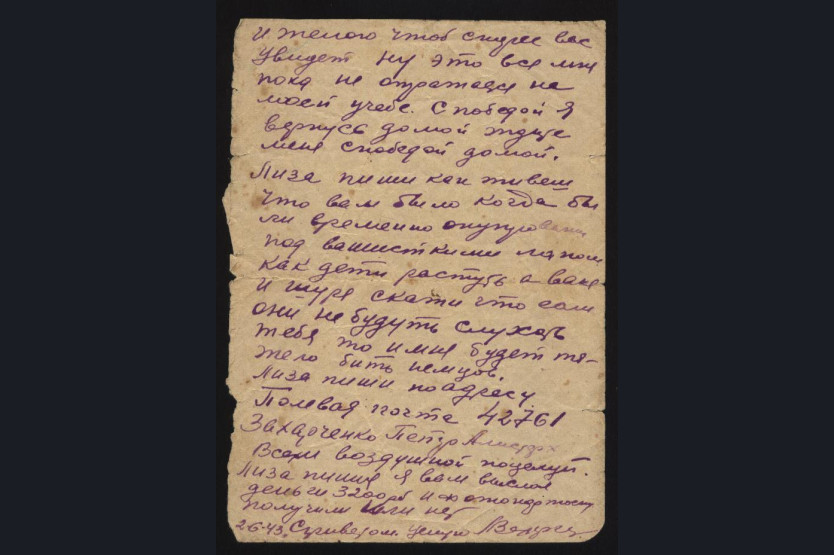 и желого чтоб скуже вас
увидет ну это все мне
пока не отражаеса не
моей учебе. С победой я
вернусь домой ждите
меня спобедой домой.
Лиза пиши как живеш
что вам было когда бы
ли временно окупирована
под вашисткими лапом
как дети растуть а ване
и шуре скати что если
они не будуть слухать
тебя то и мне будет тя-
жело бить немцов.
Лиза пиши по адресу
Полевая почта 42761
Захарченко Петр
Всем воздушной поцелуй.
Лиза пиши я вам выслал
деньги 3200 рб и фотокарточку
получили или нет
2-6-43. Сприветом